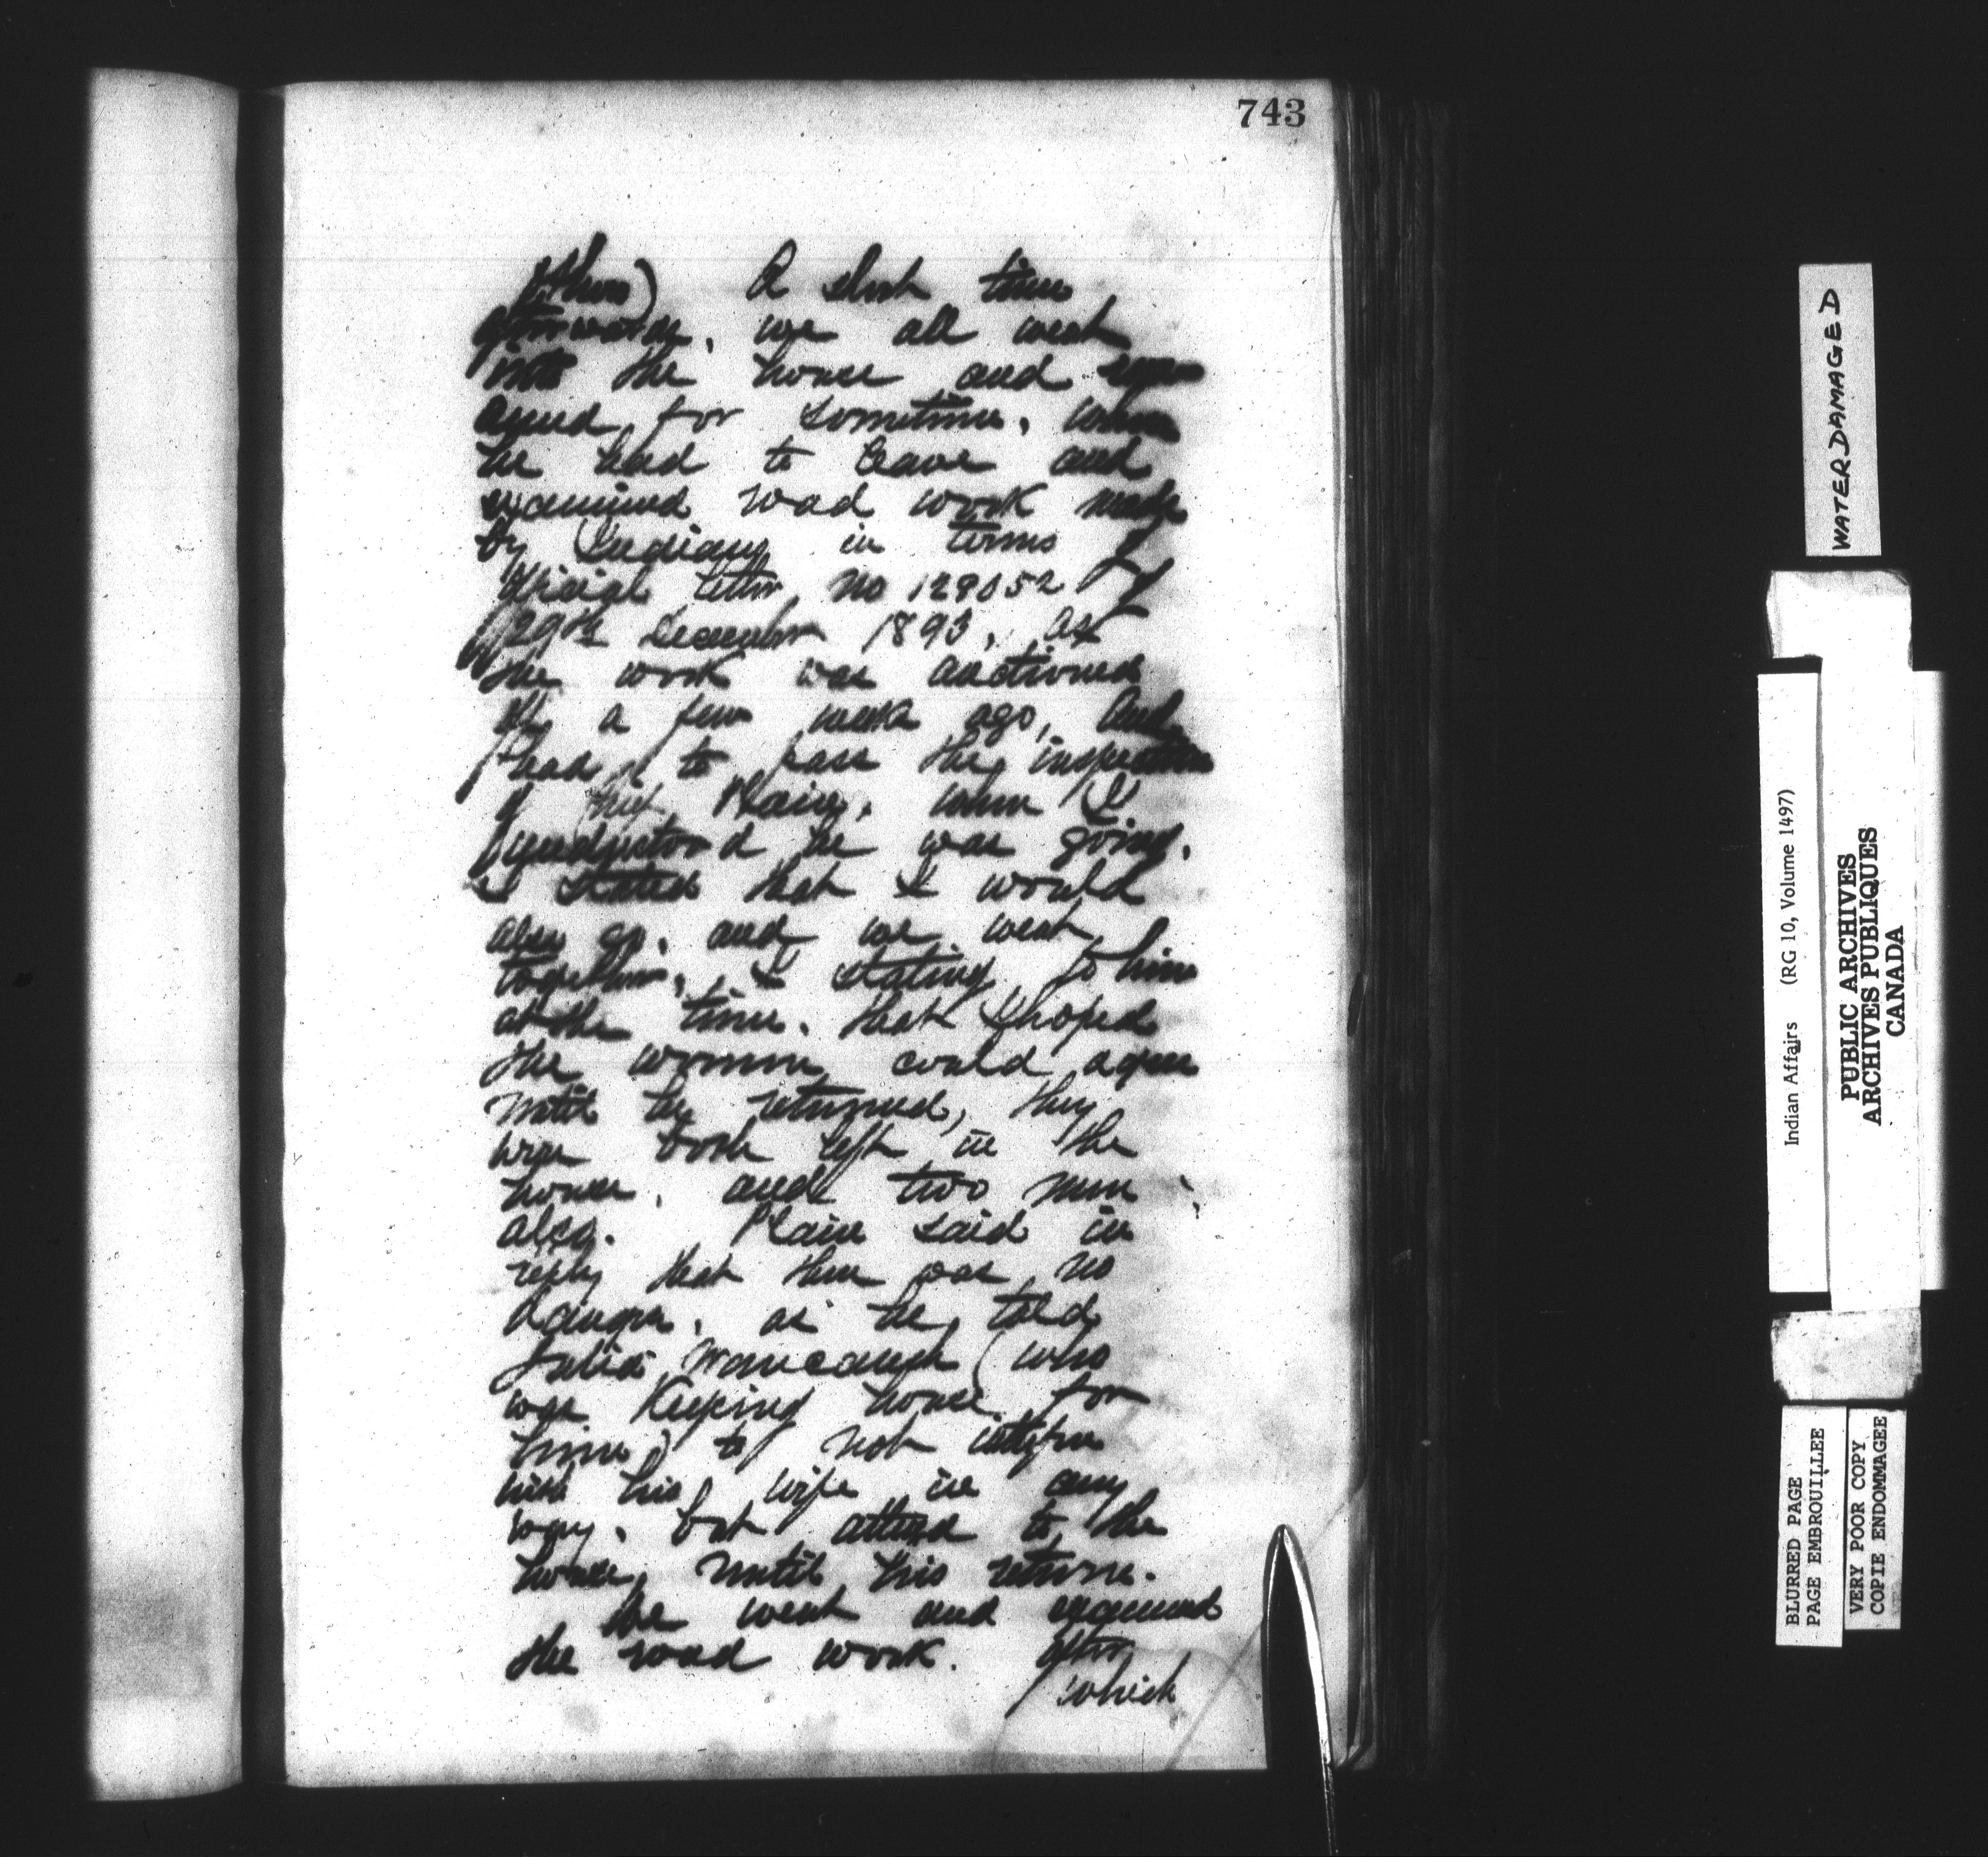 743
A short time
afterwards, we all went
into the house and
for sometime, when
he had to leave and
examined road work made
by Indians in terms of
Official letter no 129052 of
29th December 1893, as
the work was auctioned
off a few weeks ago, and
had to pass the inspection
of Chief Plain, when I
understood he was going,
I stated that I would
also go, and we went
together, I stating to him
at the time, that I hoped
the women could agree
until he returned, they
were both left in the
house, and two men
also. Plain said in
reply that there was no
danger, as he told
Julia (who
was keeping house for
him) to not interfere
with his wife in any
way, but attend to the
house, until his return.
We went and examined
the road work. After
which
WATERDAMAGED
Indian Affairs (RG 10, Volume 1497)
PUBLIC ARCHIVES
ARCHIVES PUBLIQUES
CANADA
BLURRED PAGE
PAGE EMBROUILLEE
VERY POOR COPY
COPIE ENDOMMAGEE